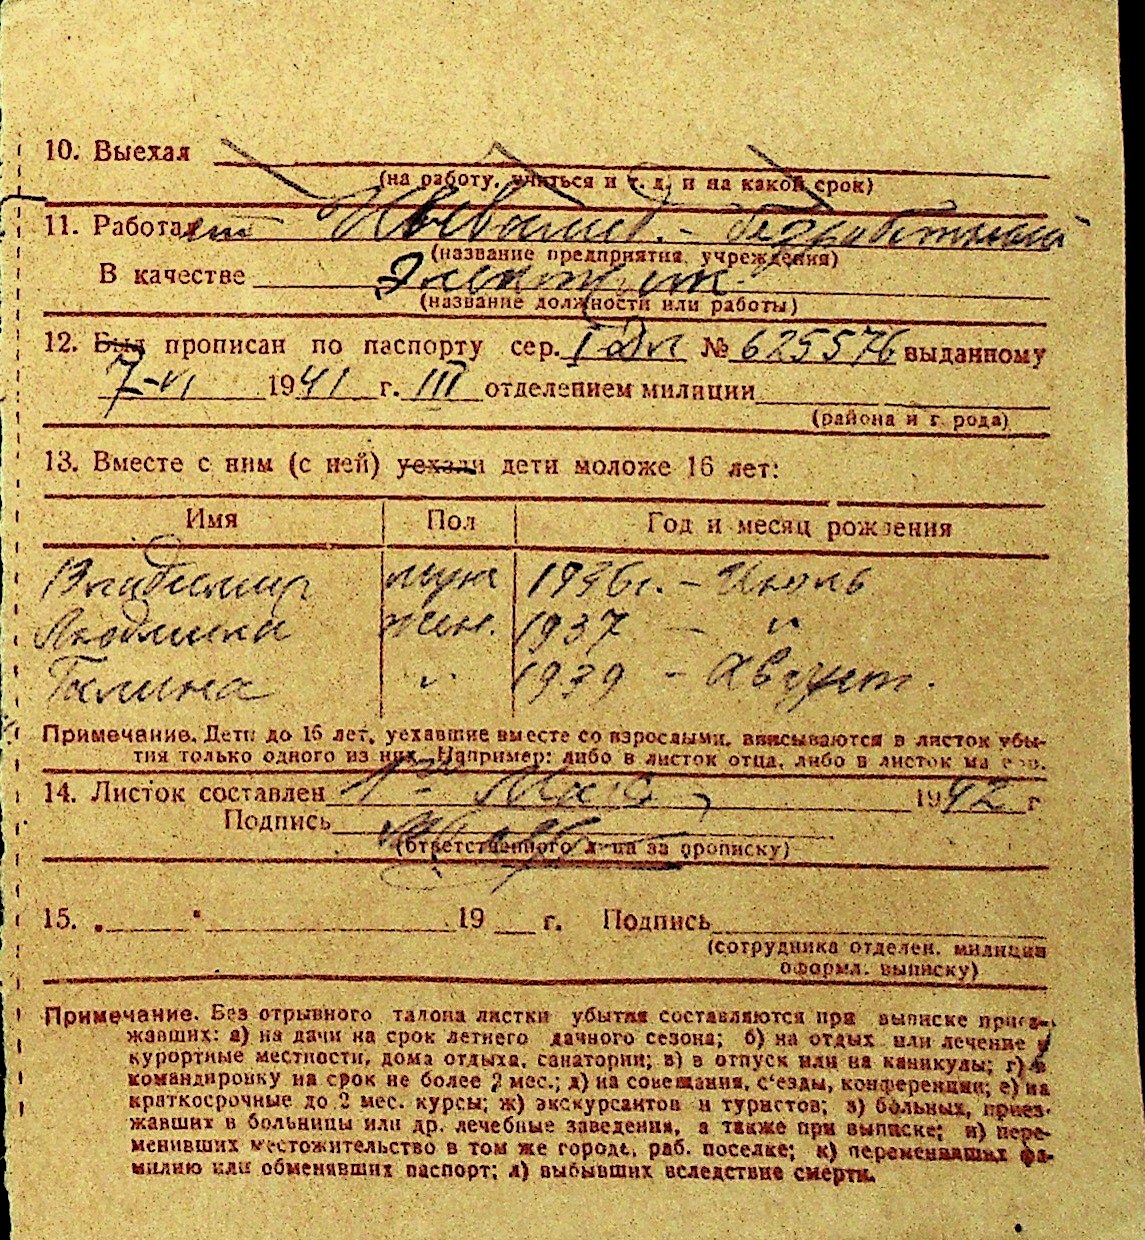 10. Выехал
(на работу, учиться и т. д. и на какой срок)
11. Работает
(название предприятия, учреждения)
В качестве Электрик
(название должности или работы)
12. Был прописан по паспорту сер. I № 625576 выданному
7-VI 1941 г. III отделением милиции
(района и г. рода)
13. Вместе с ним (с ней) уехали дети моложе 16 лет:
Имя Пол Год и месяц рождения
Владимир муж 1936г. - Июль
Людмила жен. 1937 - "
Галина " 1939 - Август.
Примечание. Дети до 16 лет, уехавшие вместе со взрослыми, вписываются в листок убы-
тия только одного из них. Например: либо в листок отца, либо в листок ма ери.
14. Листок составлен 1го Мая 1942 г
Подпись
(ответственного лица за прописку)
15. „ " 19 г. Подпись
(сотрудника отделен. милиции
оформл. выписку)
Примечание. Без отрывного талона листки убытия составляются при выписке приез-
жавших: а) на дачи на срок летнего дачного сезона; б) на отдых или лечение в
курортные местности, дома отдыха, санатории; в) в отпуск или на каникулы; г) в
командировку на срок не более 2 мес.; д) на совещания, с'езды, конференции; е) на
краткосрочные до 2 мес. курсы; ж) экскурсантов и туристов; з) больных, приез-
жавших в больницы или др. лечебные заведения, а также при выписке; и) пере-
менивших местожительство в том же городе, раб. поселке; к) переменивших фа-
милию или обменявших паспорт; л) выбывших вследствие смерти.